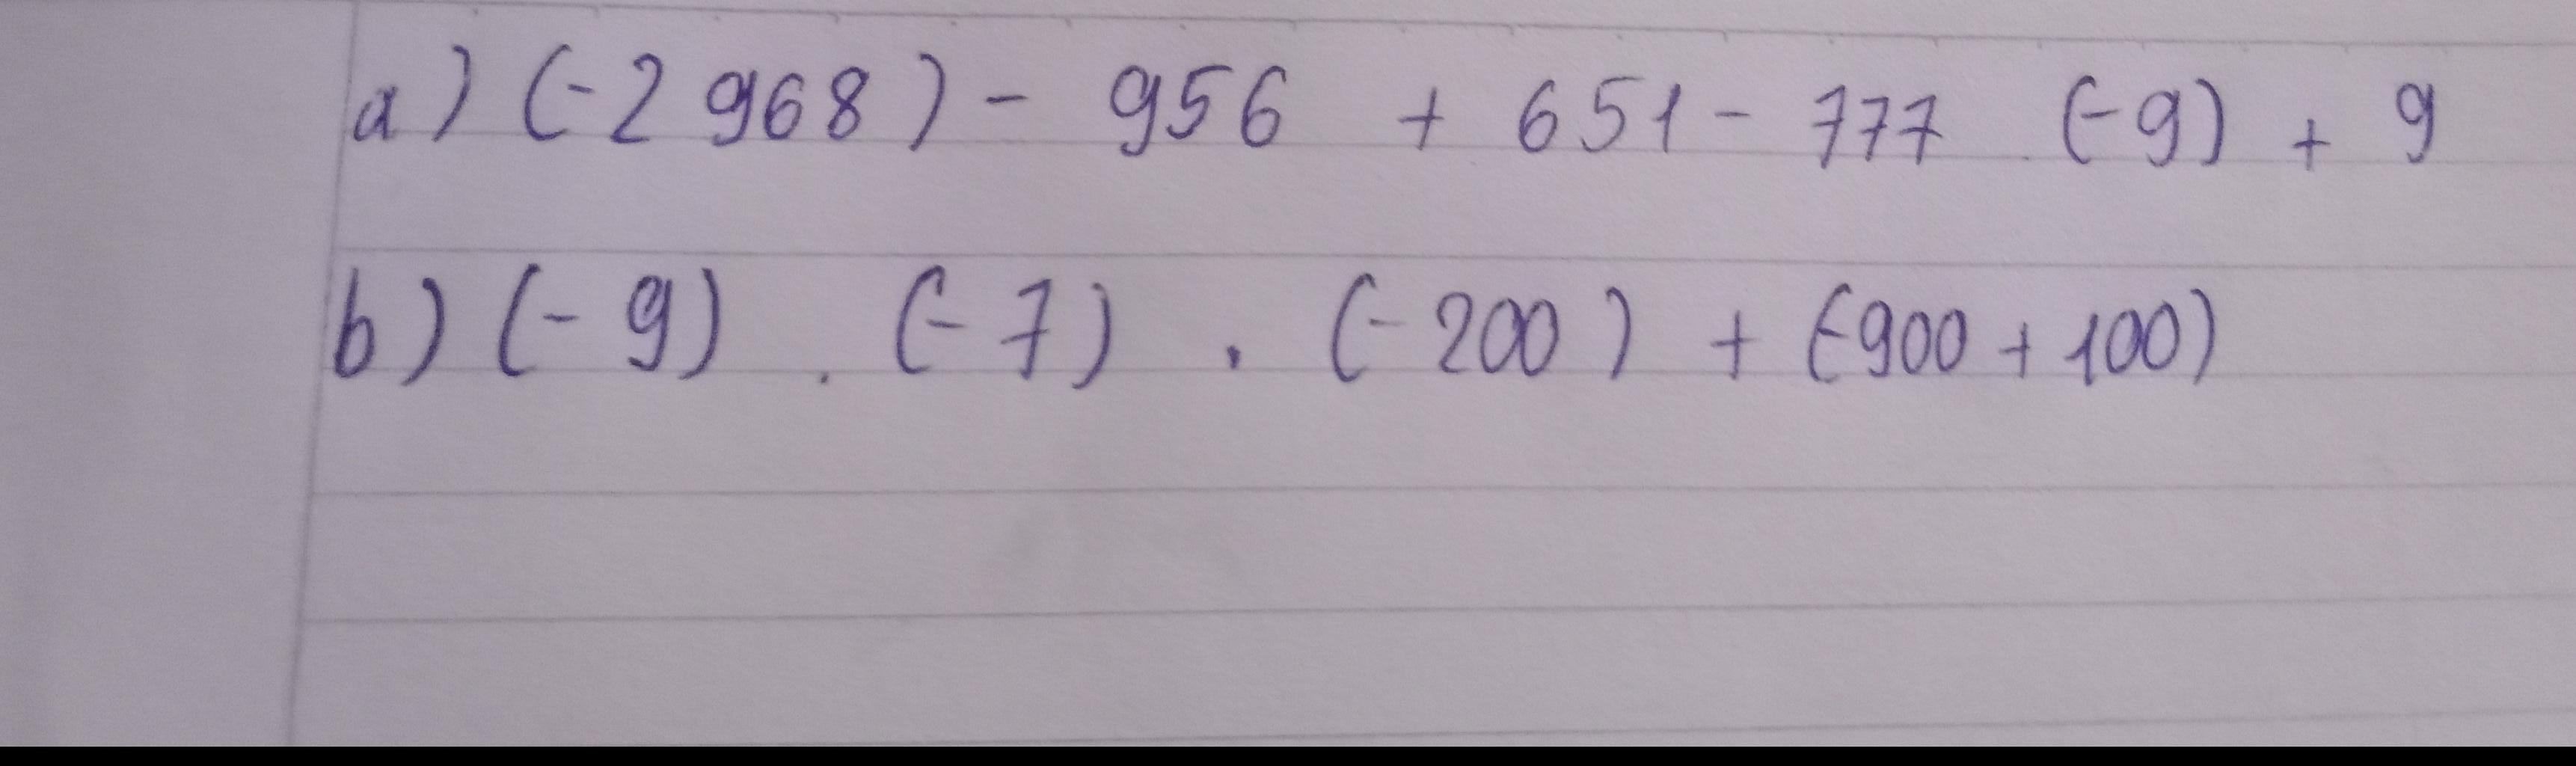 a) (-2 968) - 956 + 651 - 777 . (-9) + 9
b) (- 9) . (- 7) . (- 200) + (-900 + 100)